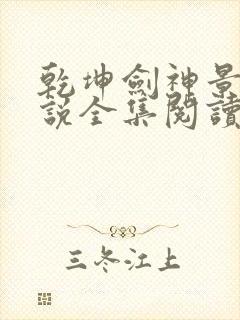 乾坤劍神景
說全集閱讀
三冬江上